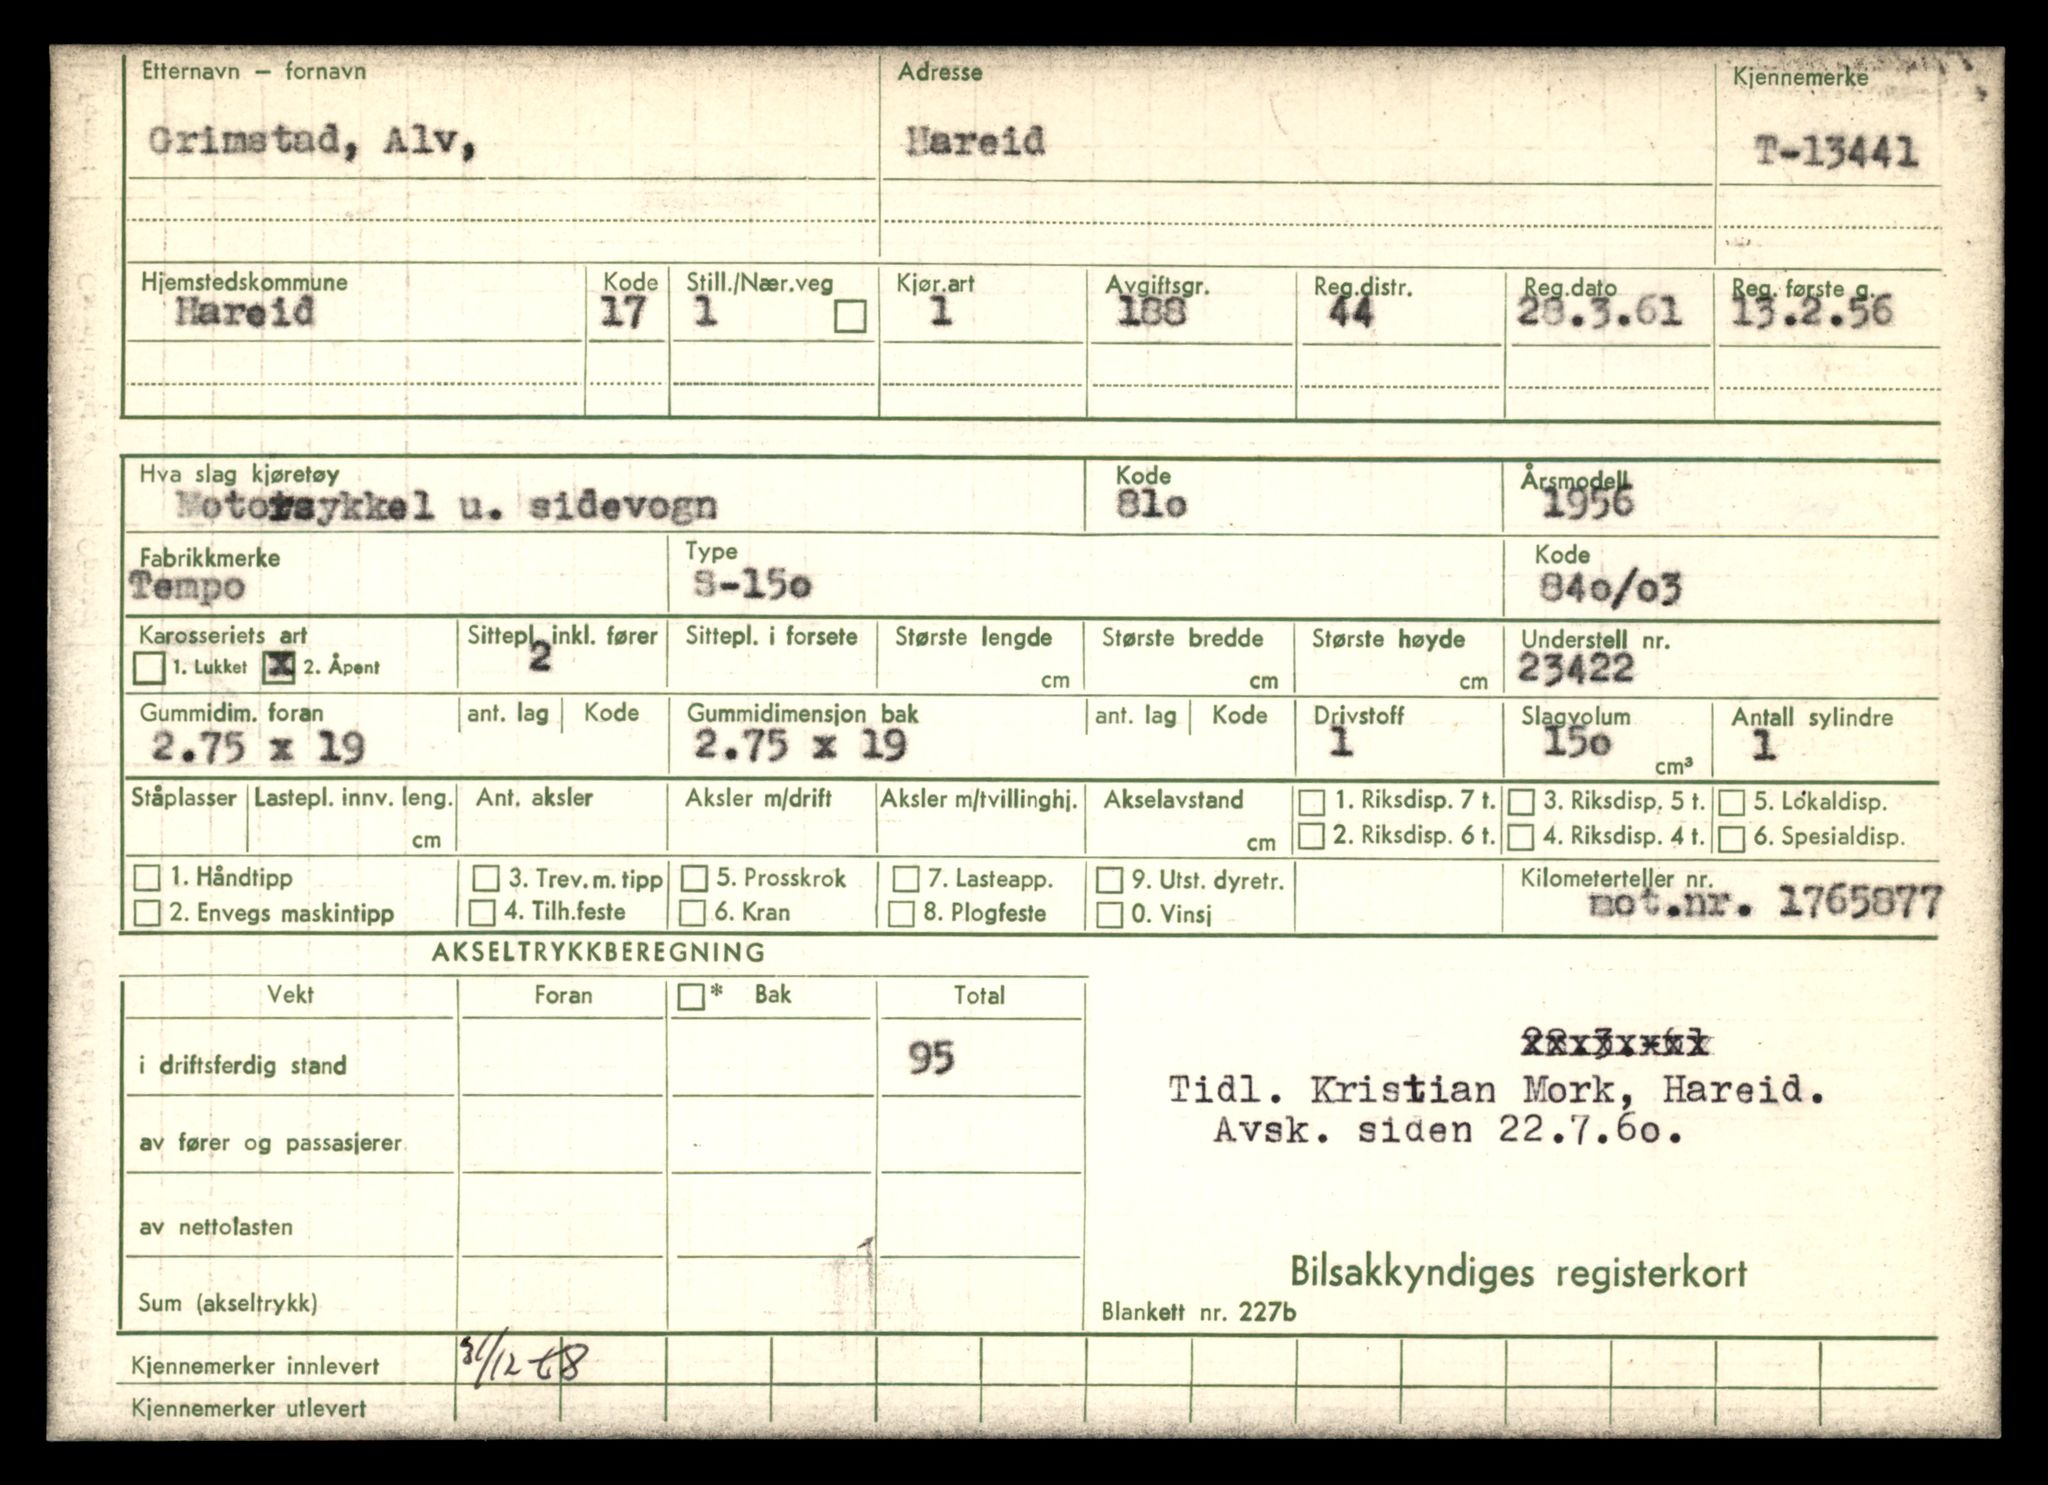 Etternavn – fornavn Adresse Kjennemerke
Grimstad, Alv, Hareid T-13441
Hjemstedskommune Kode Still./Nær.veg Kjør.art Avgiftsgr. Reg.distr. Reg.dato Reg. første g.
Hareid 17 1 1 188 44 28.3.61 13.2.56
Hva slag kjøretøy Kode Årsmodell
Motorsykkel u. sidevogn 81o 1956
Fabrikkmerke Type Kode
Tempo S-15o 84o/o3
Karosseriets art Sittepl. inkl. fører Sittepl. i forsete Største lengde Største bredde Største høyde Understell nr.
1. Lukket x 2. Åpent 2 cm cm cm 23422
Gummidim. foran ant. lag Kode Gummidimensjon bak ant. lag Kode Drivstoff Slagvolum Antall sylindre
2.75 x 19 2.75 x 19 1 15o cm³ 1
Ståplasser Lastepl. innv. leng. Ant. aksler Aksler m/drift Aksler m/tvillinghj. Akselavstand 1. Riksdisp. 7 t. 3. Riksdisp. 5 t. 5. Lokaldisp.
cm cm 2. Riksdisp. 6 t. 4. Riksdisp. 4 t. 6. Spesialdisp.
1. Håndtipp 3. Trev. m. tipp 5. Prosskrok 7. Lasteapp. 9. Utst. dyretr. Kilometerteller nr.
2. Envegs maskintipp 4. Tilh.feste 6. Kran 8. Plogfeste 0. Vinsj mot.nr. 1765877
AKSELTRYKKBEREGNING
Vekt Foran * Bak Total
i driftsferdig stand 95
Tidl. Kristian Mork, Hareid.
Avsk. siden 22.7.6o.
av fører og passasjerer
av nettolasten
Bilsakkyndiges registerkort
Sum (akseltrykk)
Blankett nr. 227b
Kjennemerker innlevert 31/12 68
Kjennemerker utlevert